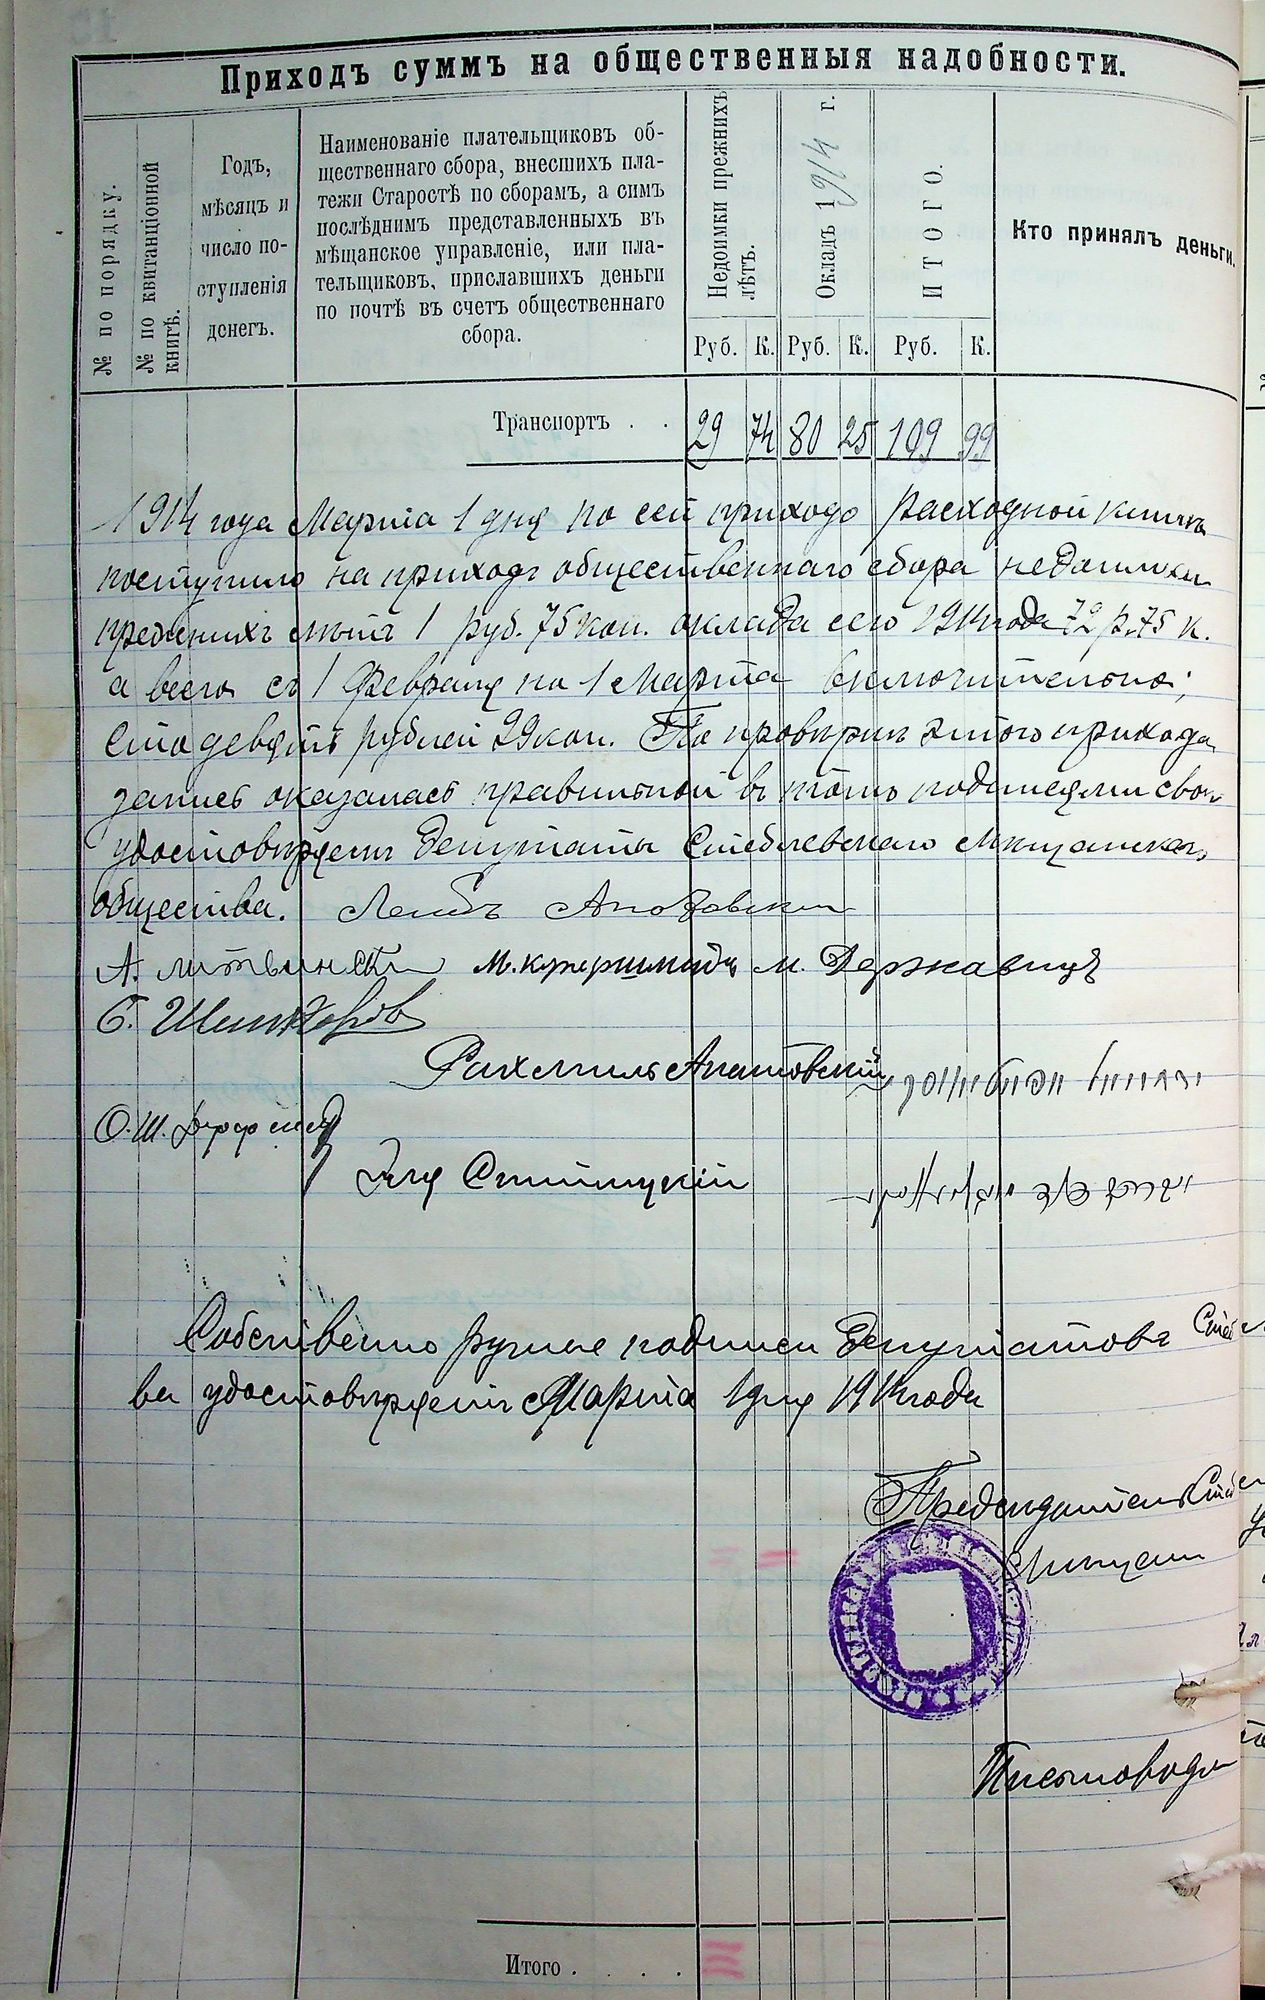 Приходъ суммъ на общественныя надобности.
№ по порядку.
№ по квитанціонной книгѣ.
Годъ,
мѣсяцъ и
число по-
ступленія
денегъ.
Наименованіе плательщиковъ об-
щественнаго сбора, внесшихъ пла-
тежи Старостѣ по сборамъ, а симъ
послѣднимъ представленныхъ въ
мѣщанское управленіе, или пла-
тельщиковъ, приславшихъ деньги
по почтѣ въ счетъ общественнаго
сбора.
Недоимки прежнихъ лѣтъ.
Окладъ 1914 г.
ИТОГО.
Кто принялъ деньги.
Руб. К. Руб. К. Руб. К.
Транспортъ . . 29 74 80 25 109 99
1914 года Марта 1 дня по сей приходо расходной книгѣ
поступило на приходъ общественнаго сбора недоимки
прежнихъ лѣтъ 1 руб. 75 коп. оклада сего 1914 года 72 р. 75 к.
а всего съ 1 Февраля по 1 Марта включительно;
Сто девять рублей 99 коп. По провѣркѣ этого прихода
запись оказалась правильной въ томъ подписями свои
удостовѣряемъ Депутаты Стеблевскаго Мѣщанскаго
общества. Лейбъ
А. Литвинскій М. М. Державецъ
Рахмиль Апатовскій
О. Ш.
Собственно ручные подписи Депутатовъ Стеб
ва удостовѣряемъ Марта 1 дня 1914 года
Предсѣдатель Стеб
Мѣщан
Письмовод
Итого . . . .